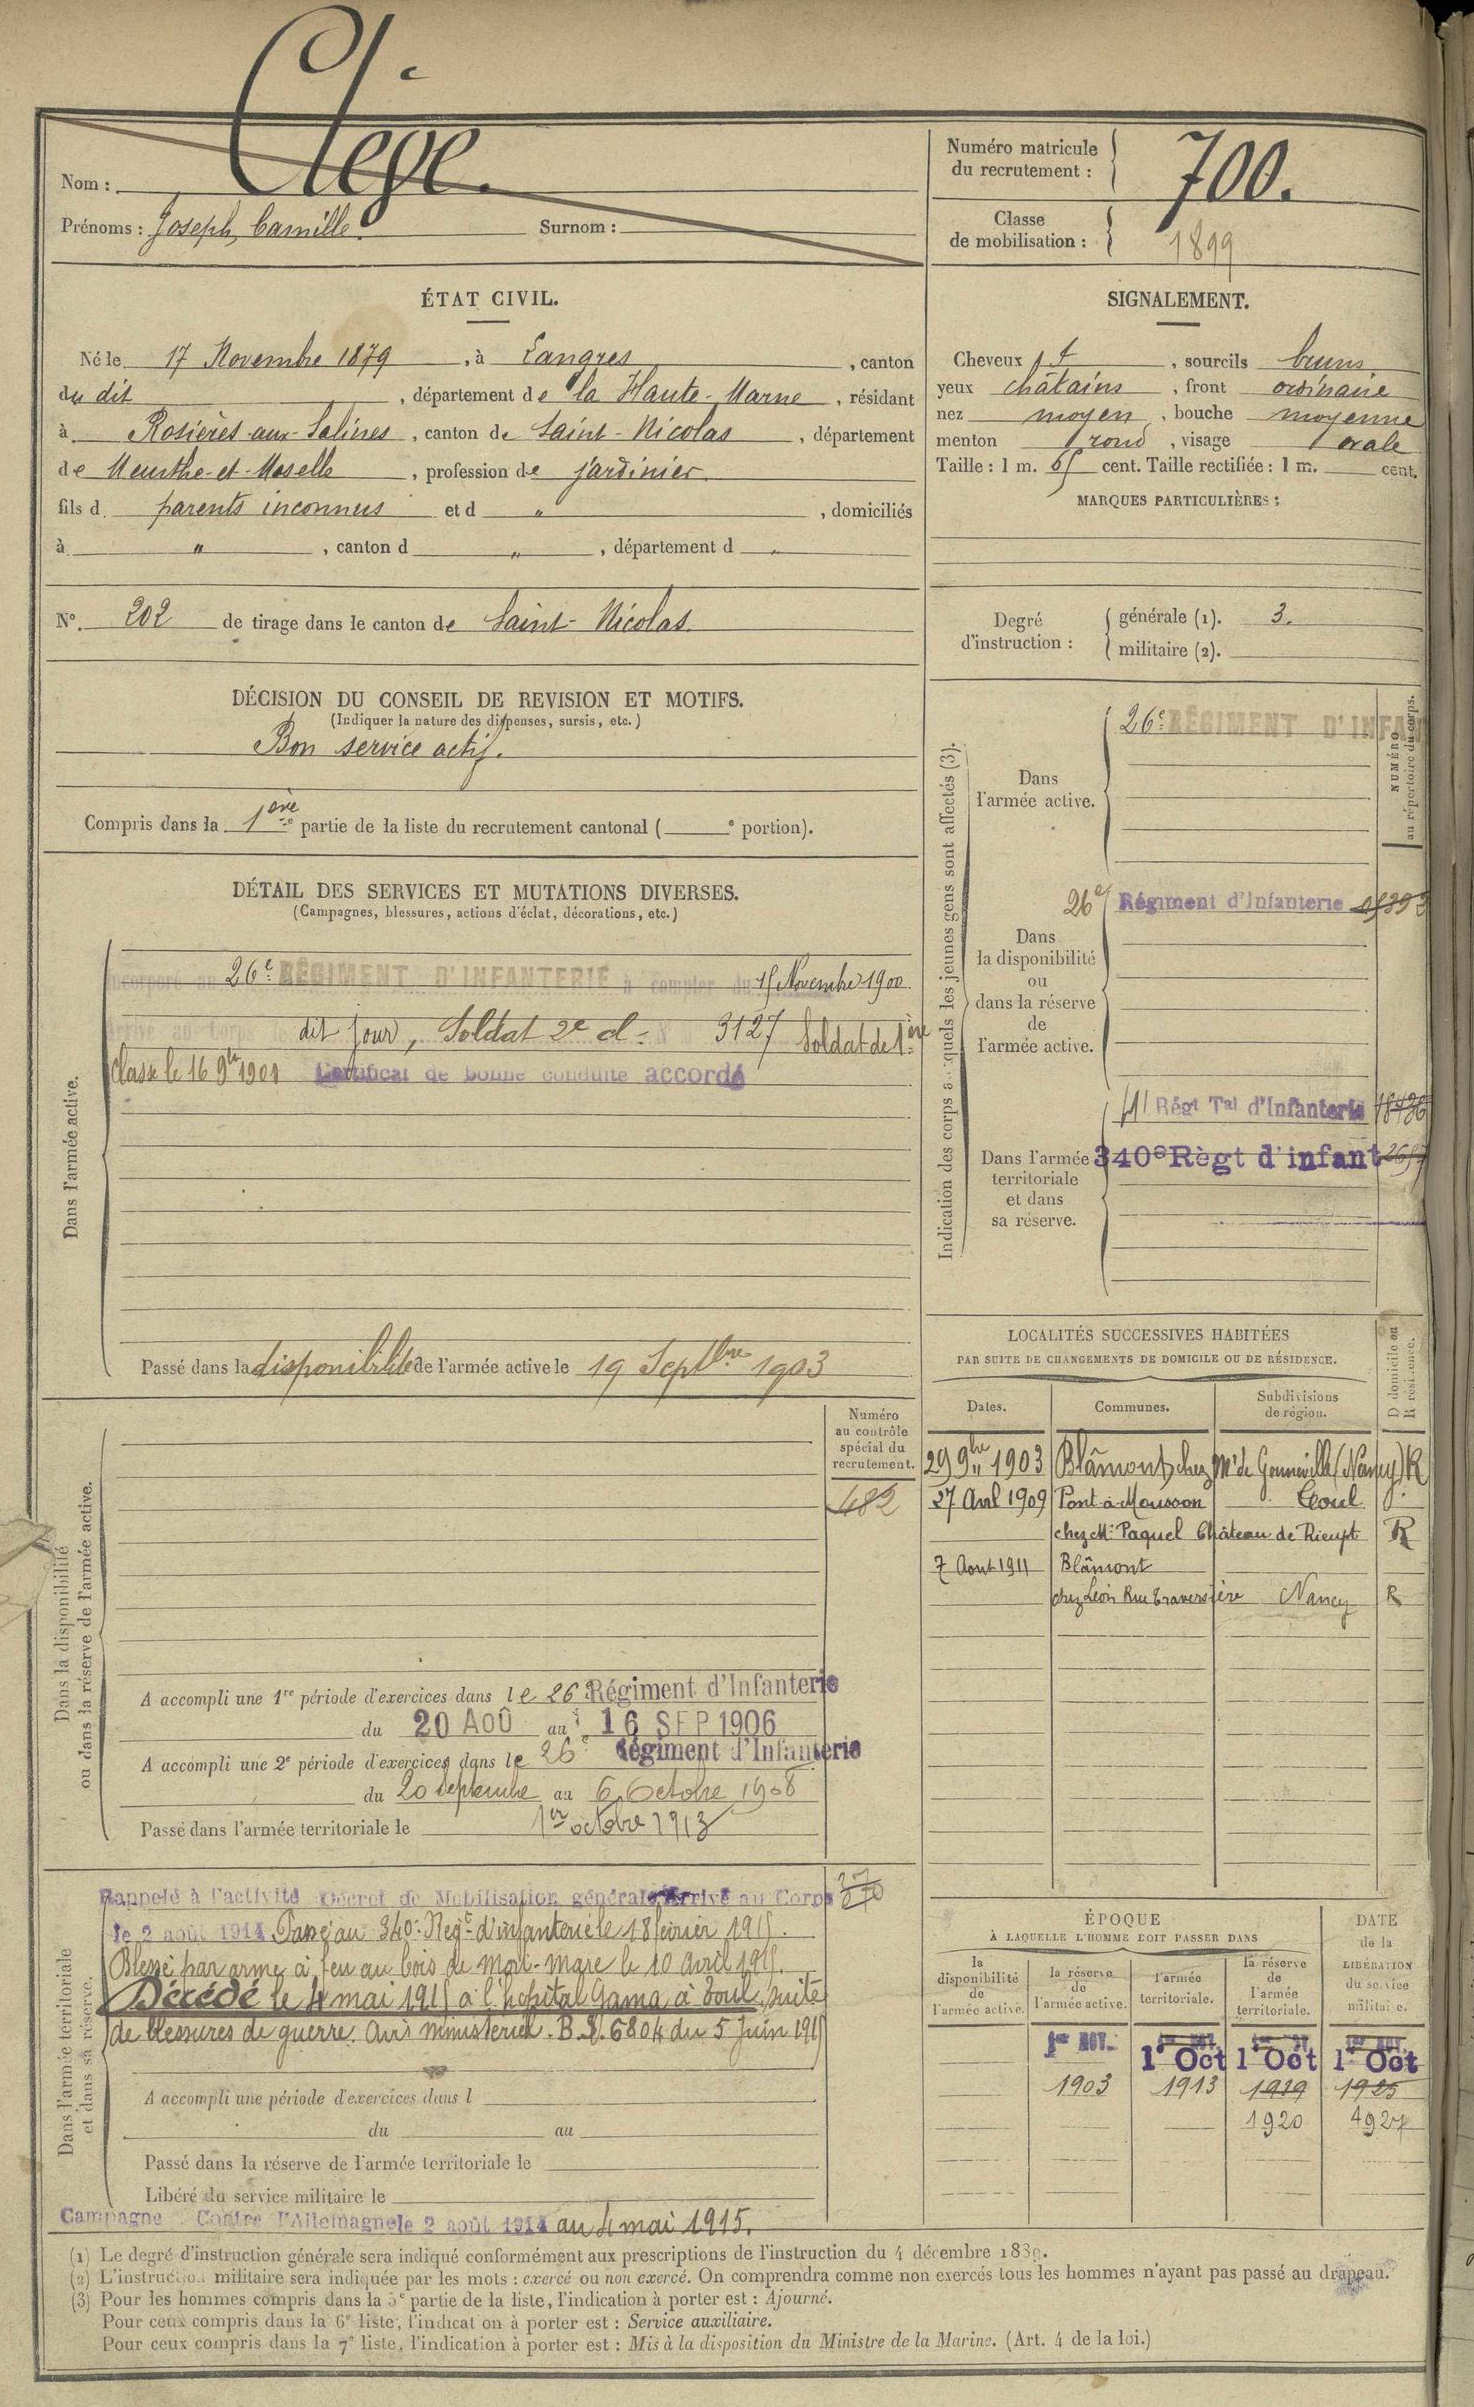 Nom : Clège.
Prénoms : Joseph, Camille. Surnom :
Numéro matricule du recrutement : 700.
Classe de mobilisation : 1899
ÉTAT CIVIL.
Né le 17 Novembre 1879, à Langres, canton
du dit, département de la Haute-Marne, résidant
à Rosières-aux-Salines, canton de Saint-Nicolas, département
de Meurthe-et-Moselle, profession de jardinier
fils d. parents inconnus et d ", domiciliés
à " , canton d " , département d "
N° 202 de tirage dans le canton de Saint-Nicolas
SIGNALEMENT.
Cheveux et, sourcils bruns
yeux châtains, front ordinaire
nez moyen, bouche moyenne
menton rond, visage ovale
Taille : 1 m. 65 cent. Taille rectifiée : 1 m. cent.
MARQUES PARTICULIÈRES :
Degré d'instruction : générale (1). 3.
militaire (2).
DÉCISION DU CONSEIL DE REVISION ET MOTIFS.
(Indiquer la nature des dispenses, sursis, etc.)
Bon service actif.
Compris dans la 1ère partie de la liste du recrutement cantonal ( e portion).
DÉTAIL DES SERVICES ET MUTATIONS DIVERSES.
(Campagnes, blessures, actions d'éclat, décorations, etc.)
Dans l'armée active.
Incorporé au 26e RÉGIMENT D'INFANTERIE à compter du 15 Novembre 1900
Arrivé au Corps le dit jour, Soldat 2e cl. N° 3127 Soldat de 1ère
Classe le 16 9bre 1901 Certificat de bonne conduite accordé
Passé dans la disponibilité de l'armée active le 19 Septbre 1903
Indication des corps auxquels les jeunes gens sont affectés (3).
NUMÉRO au répertoire du corps.
Dans l'armée active.
26e RÉGIMENT D'INFAN
Dans la disponibilité ou dans la réserve de l'armée active.
26e Régiment d'Infanterie
Dans l'armée territoriale et dans sa réserve.
41 Régt Tal d'Infanterie
340e Règt d'infant
LOCALITÉS SUCCESSIVES HABITÉES
PAR SUITE DE CHANGEMENTS DE DOMICILE OU DE RÉSIDENCE.
Dates. Communes. Subdivisions de région. D domicile ou R résidence.
29 9bre 1903 Blâmont, chez Mr de Gonneville (Nancy) R
27 Avril 1909 Pont-à-Mousson Toul
chez M. Paquel Château de Rieupt R
7 Aout 1911 Blâmont
chez Léon Rue Traversière Nancy R
Dans la disponibilité ou dans la réserve de l'armée active.
Numéro au contrôle spécial du recrutement.
482
A accompli une 1re période d'exercices dans le 26e Régiment d'Infanterie
du 20 AOÛ au 16 SEP 1906
A accompli une 2e période d'exercices dans le 26e Régiment d'Infanterie
du 20 septembre au 6 Octobre 1908
Passé dans l'armée territoriale le 1er octobre 1913
Dans l'armée territoriale et dans sa réserve.
Rappelé à l'activité Décret de Mobilisation générale Arrivé au Corps
le 2 août 1914 Passé au 340e Régt d'infanterie le 18 février 1915.
Blessé par arme à feu au bois de Mort-Mare le 10 avril 1915.
Décédé le 4 mai 1915 à l'hopital Gama à Toul, suite
de blessures de guerre. Avis ministeriel. B.S. 6804 du 5 Juin 1915
A accompli une période d'exercices dans l
du au
Passé dans la réserve de l'armée territoriale le
Libéré du service militaire le
Campagne Contre l'Allemagne le 2 août 1914 au 4 mai 1915.
ÉPOQUE
À LAQUELLE L'HOMME DOIT PASSER DANS
DATE de la LIBÉRATION du service militaire.
la disponibilité de l'armée active. la réserve de l'armée active. l'armée territoriale. la réserve de l'armée territoriale.
1er NOV. 1er Oct 1er Oct 1er Oct
1903 1913 1919 1925
1920 1927
(1) Le degré d'instruction générale sera indiqué conformément aux prescriptions de l'instruction du 4 décembre 1889.
(2) L'instruction militaire sera indiquée par les mots : exercé ou non exercé. On comprendra comme non exercés tous les hommes n'ayant pas passé au drapeau.
(3) Pour les hommes compris dans la 5e partie de la liste, l'indication à porter est : Ajourné.
Pour ceux compris dans la 6e liste, l'indication à porter est : Service auxiliaire.
Pour ceux compris dans la 7e liste, l'indication à porter est : Mis à la disposition du Ministre de la Marine. (Art. 4 de la loi.)